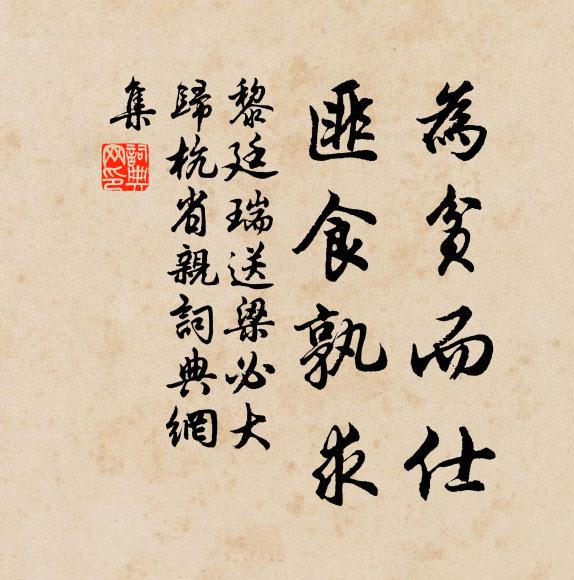 為貧而仕
匪食孰求
黎廷瑞送梁必大
歸杭省親詞典網
集
詞典
网印